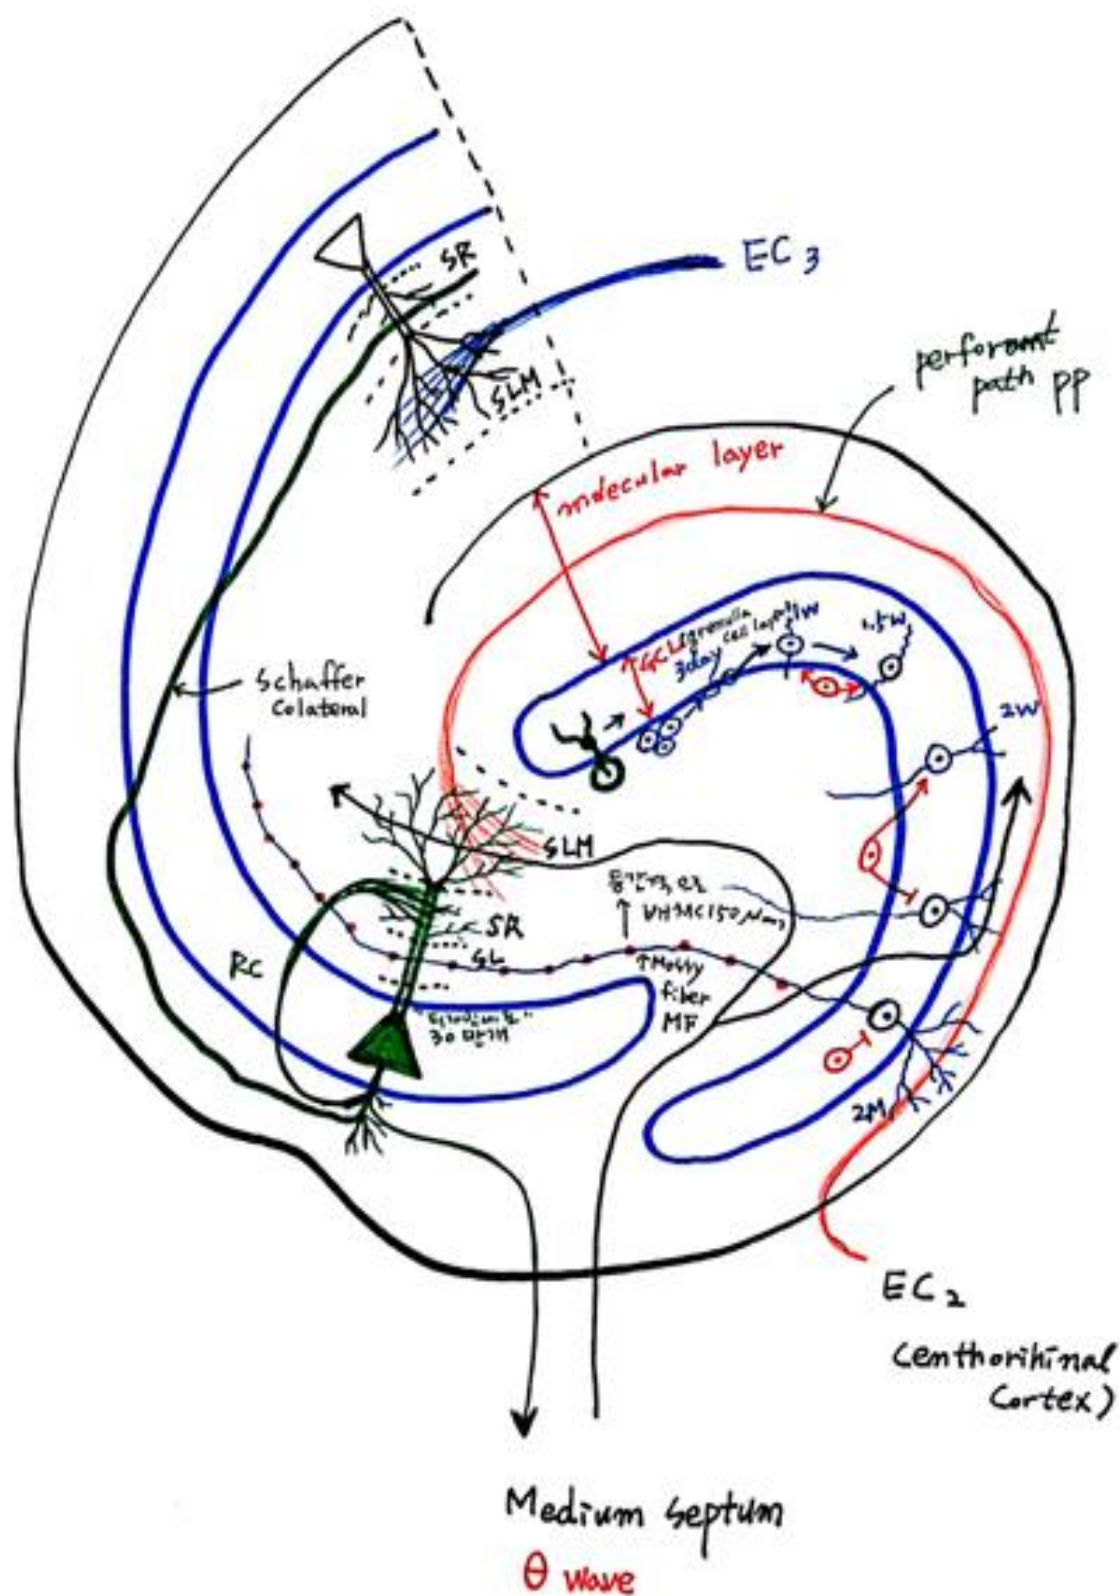 SR
EC3
SLM
perforant
path PP
molecular layer
GCL(granulla
cell layer)
3day
1W
1.5W
2W
Schaffer
Colateral
SLM
SR
SL
RC
Mossy
fiber
MF
30만개
2M
EC2
(enthorihinal
Cortex)
Medium Septum
θ wave